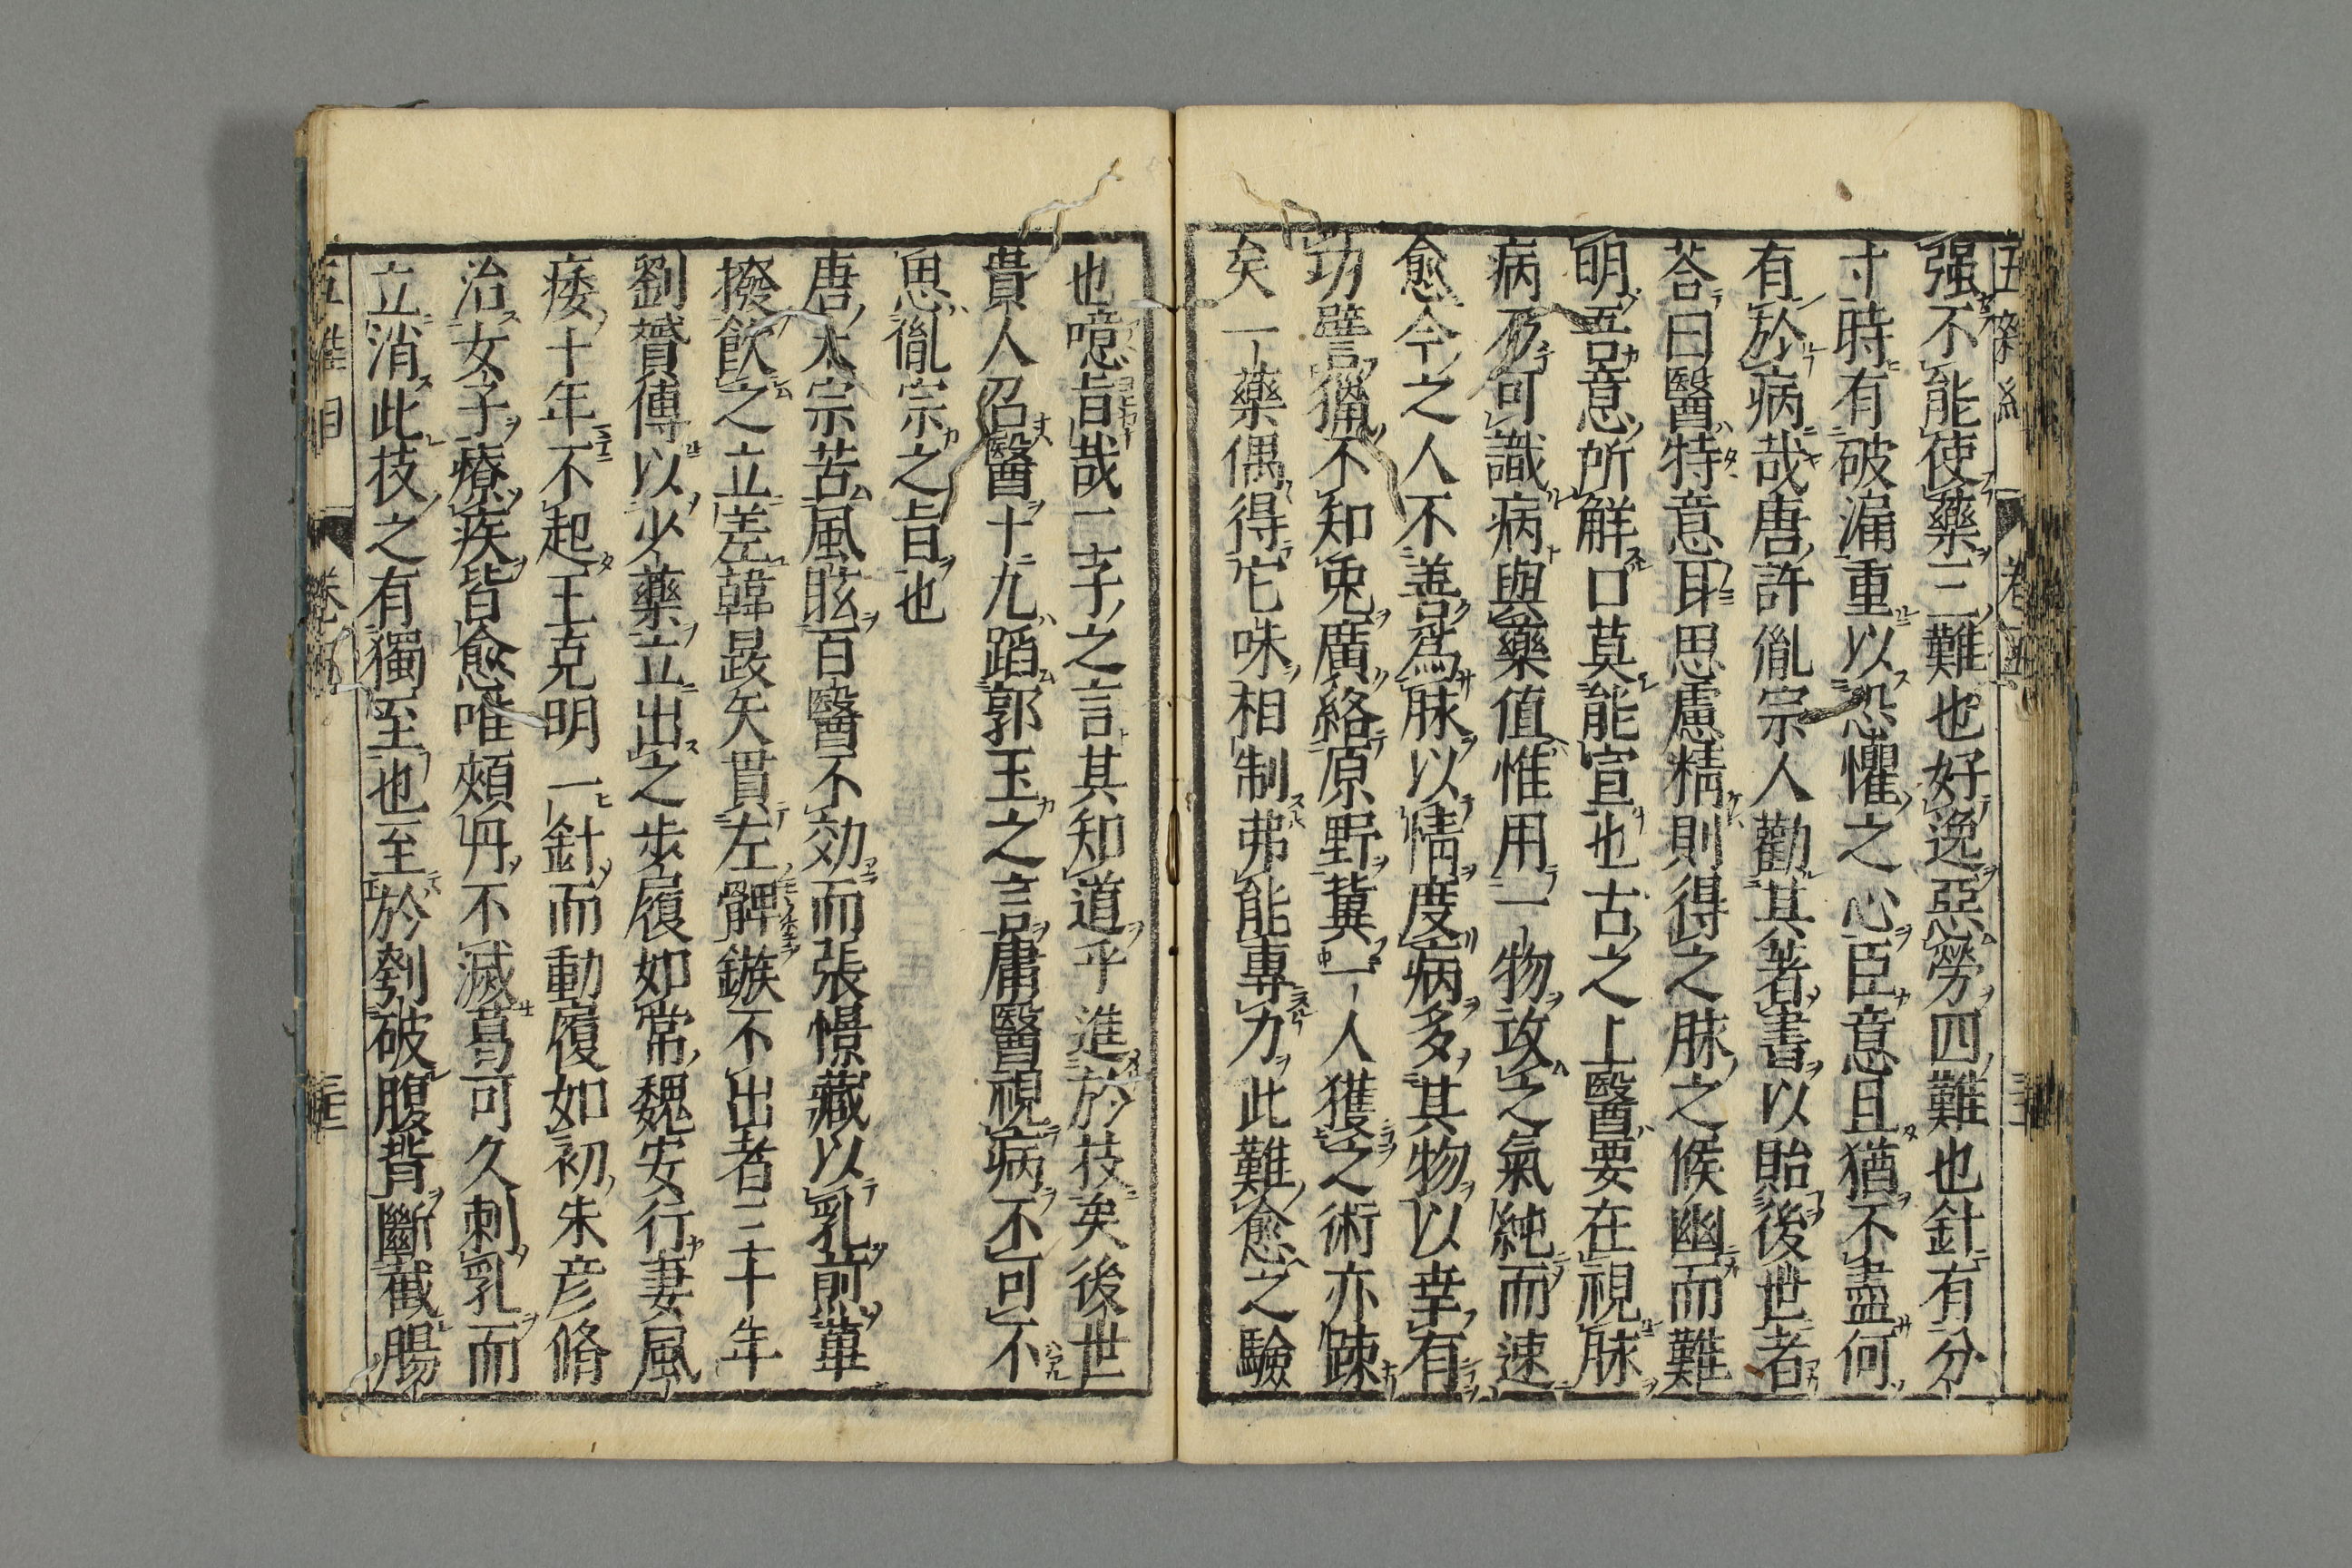 强不能使藥三難也好逸惡勞四難也針有分
寸時有破漏重以恐懼之心臣意且猶不盡何
有於病哉唐許胤宗人勸其著書以貽後世者
荅曰醫特意耳思慮精則得之脉之候幽而難
明吾意所解口莫能宣也古之上醫要在視脉
病乃可識病與藥值惟用一物攻之氣純而速
愈今之人不善爲脉以情度病多其物以幸有
功譬獵不知兔廣絡原野冀一人獲之術亦疎
矣一藥偶得它味相制弗能專力此難愈之驗
也噫旨哉二子之言其知道乎進於技矣後世
貴人召醫十九蹈郭玉之言庸醫視病不可不
思胤宗之旨也
唐太宗苦風眩百醫不効而張憬藏以乳煎蓽
撥飲之立差韓晸矢貫左髀鏃不出者三十年
劉贇傅以少藥立出之步履如常魏安行妻風
痿十年不起王克明一針而動履如初朱彦脩
治女子療疾皆愈唯頰丹不滅葛可久刺乳而
立消此技之有獨至也至於刳破腹背斷截腸